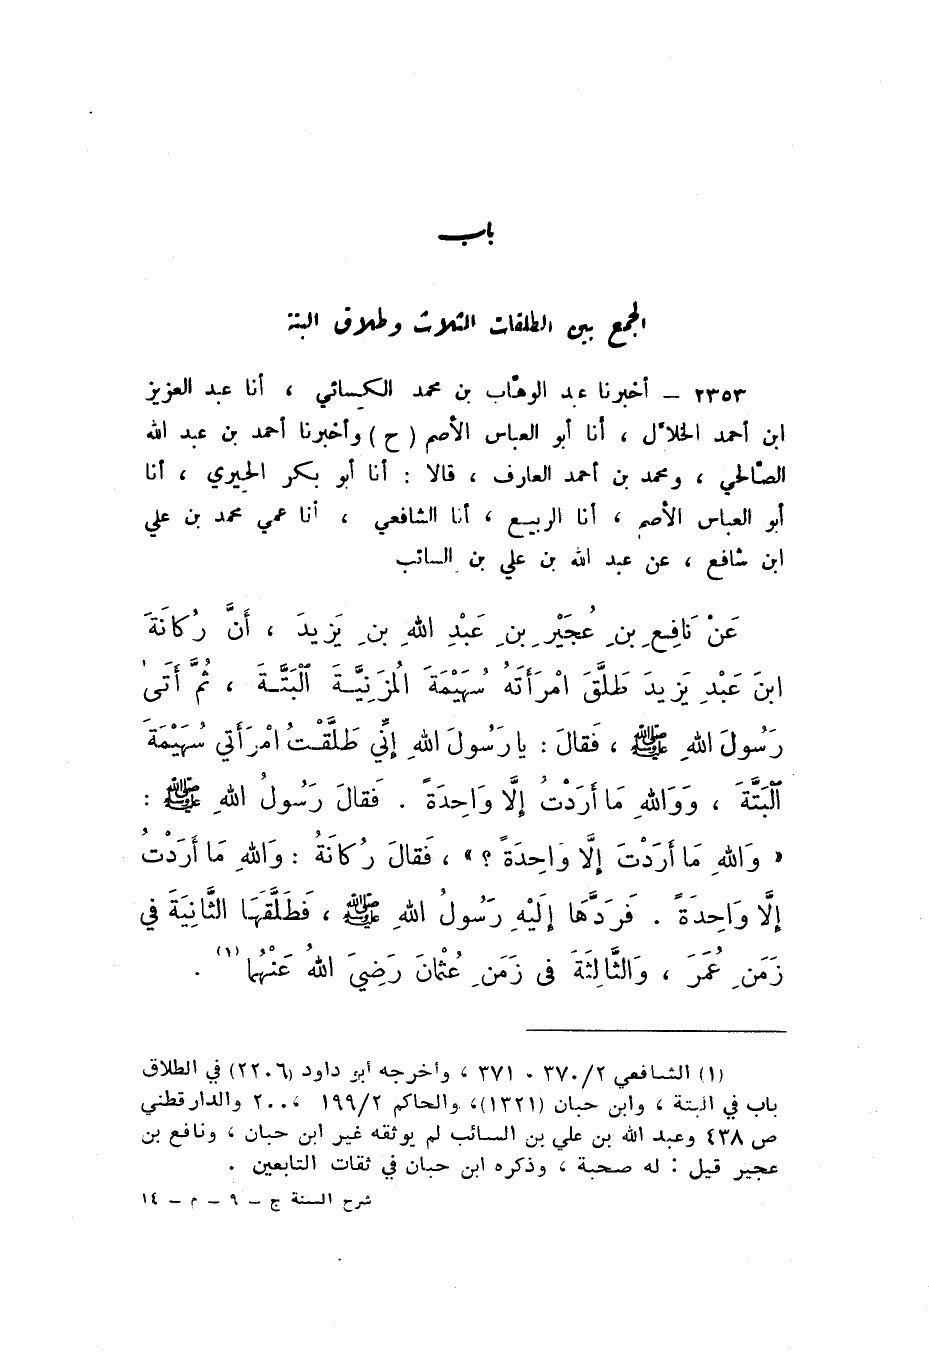 باب
الجمع بين الطلقات الثلاث وطلاق البتة
٢٣٥٣ – أخبرنا عبد الوهّاب بن محمد الكسائي ، أنا عبد العزيز
ابن أحمد الخلاّل ، أنا أبو العباس الأصم ( ح ) وأخبرنا أحمد بن عبد الله
الصّالحي ، ومحمد بن أحمد العارف ، قالا : أنا أبو بكر الحيري ، أنا
أبو العباس الأصم ، أنا الربيع ، أنا الشافعي ، أنا عمي محمد بن علي
ابن شافع ، عن عبد الله بن علي بن السائب
عَنْ نَافِعِ بنِ عُجَيْرِ بنِ عَبْدِ اللهِ بنِ يَزِيدَ ، أَنَّ رُكَانَةَ
ابنَ عَبْدِ يَزِيدَ طَلَّقَ امْرَأَتَهُ سُهَيْمَةَ المُزَنِيَّةَ ٱلْبَتَّةَ ، ثُمَّ أَتَى
رَسُولَ اللهِ ﷺ ، فَقَالَ : يا رَسُولَ اللهِ إِنِّي طَلَّقْتُ امْرَأَتي سُهَيْمَةَ
ٱلْبَتَّةَ ، وَوَاللهِ مَا أَرَدْتُ إِلَّا وَاحِدَةً . فَقَالَ رَسُولُ اللهِ ﷺ :
« وَاللهِ مَا أَرَدْتَ إِلَّا وَاحِدَةً ؟ » ، فَقَالَ رُكَانَةُ : وَاللهِ مَا أَرَدْتُ
إِلَّا وَاحِدَةً . فَرَدَّهَا إِلَيْهِ رَسُولُ اللهِ ﷺ ، فَطَلَّقَهَا الثَّانِيَةَ في
زَمَنِ عُمَرَ ، وَالثَّالِثَةَ فى زَمَنِ عُثْمانَ رَضِيَ اللهُ عَنْهُما (١) .
(١) الشافعي ٣٧٠/٢ ، ٣٧١ ، وأخرجه أبو داود (٢٢٠٦) في الطلاق
باب في البتة ، وابن حبان (١٣٢١)، والحاكم ١٩٩/٢ ، ٢٠٠ والدارقطني
ص ٤٣٨ وعبد الله بن علي بن السائب لم يوثقه غير ابن حبان ، ونافع بن
عجير قيل : له صحبة ، وذكره ابن حبان في ثقات التابعين .
شرح السنة ج – ٩ – م – ١٤